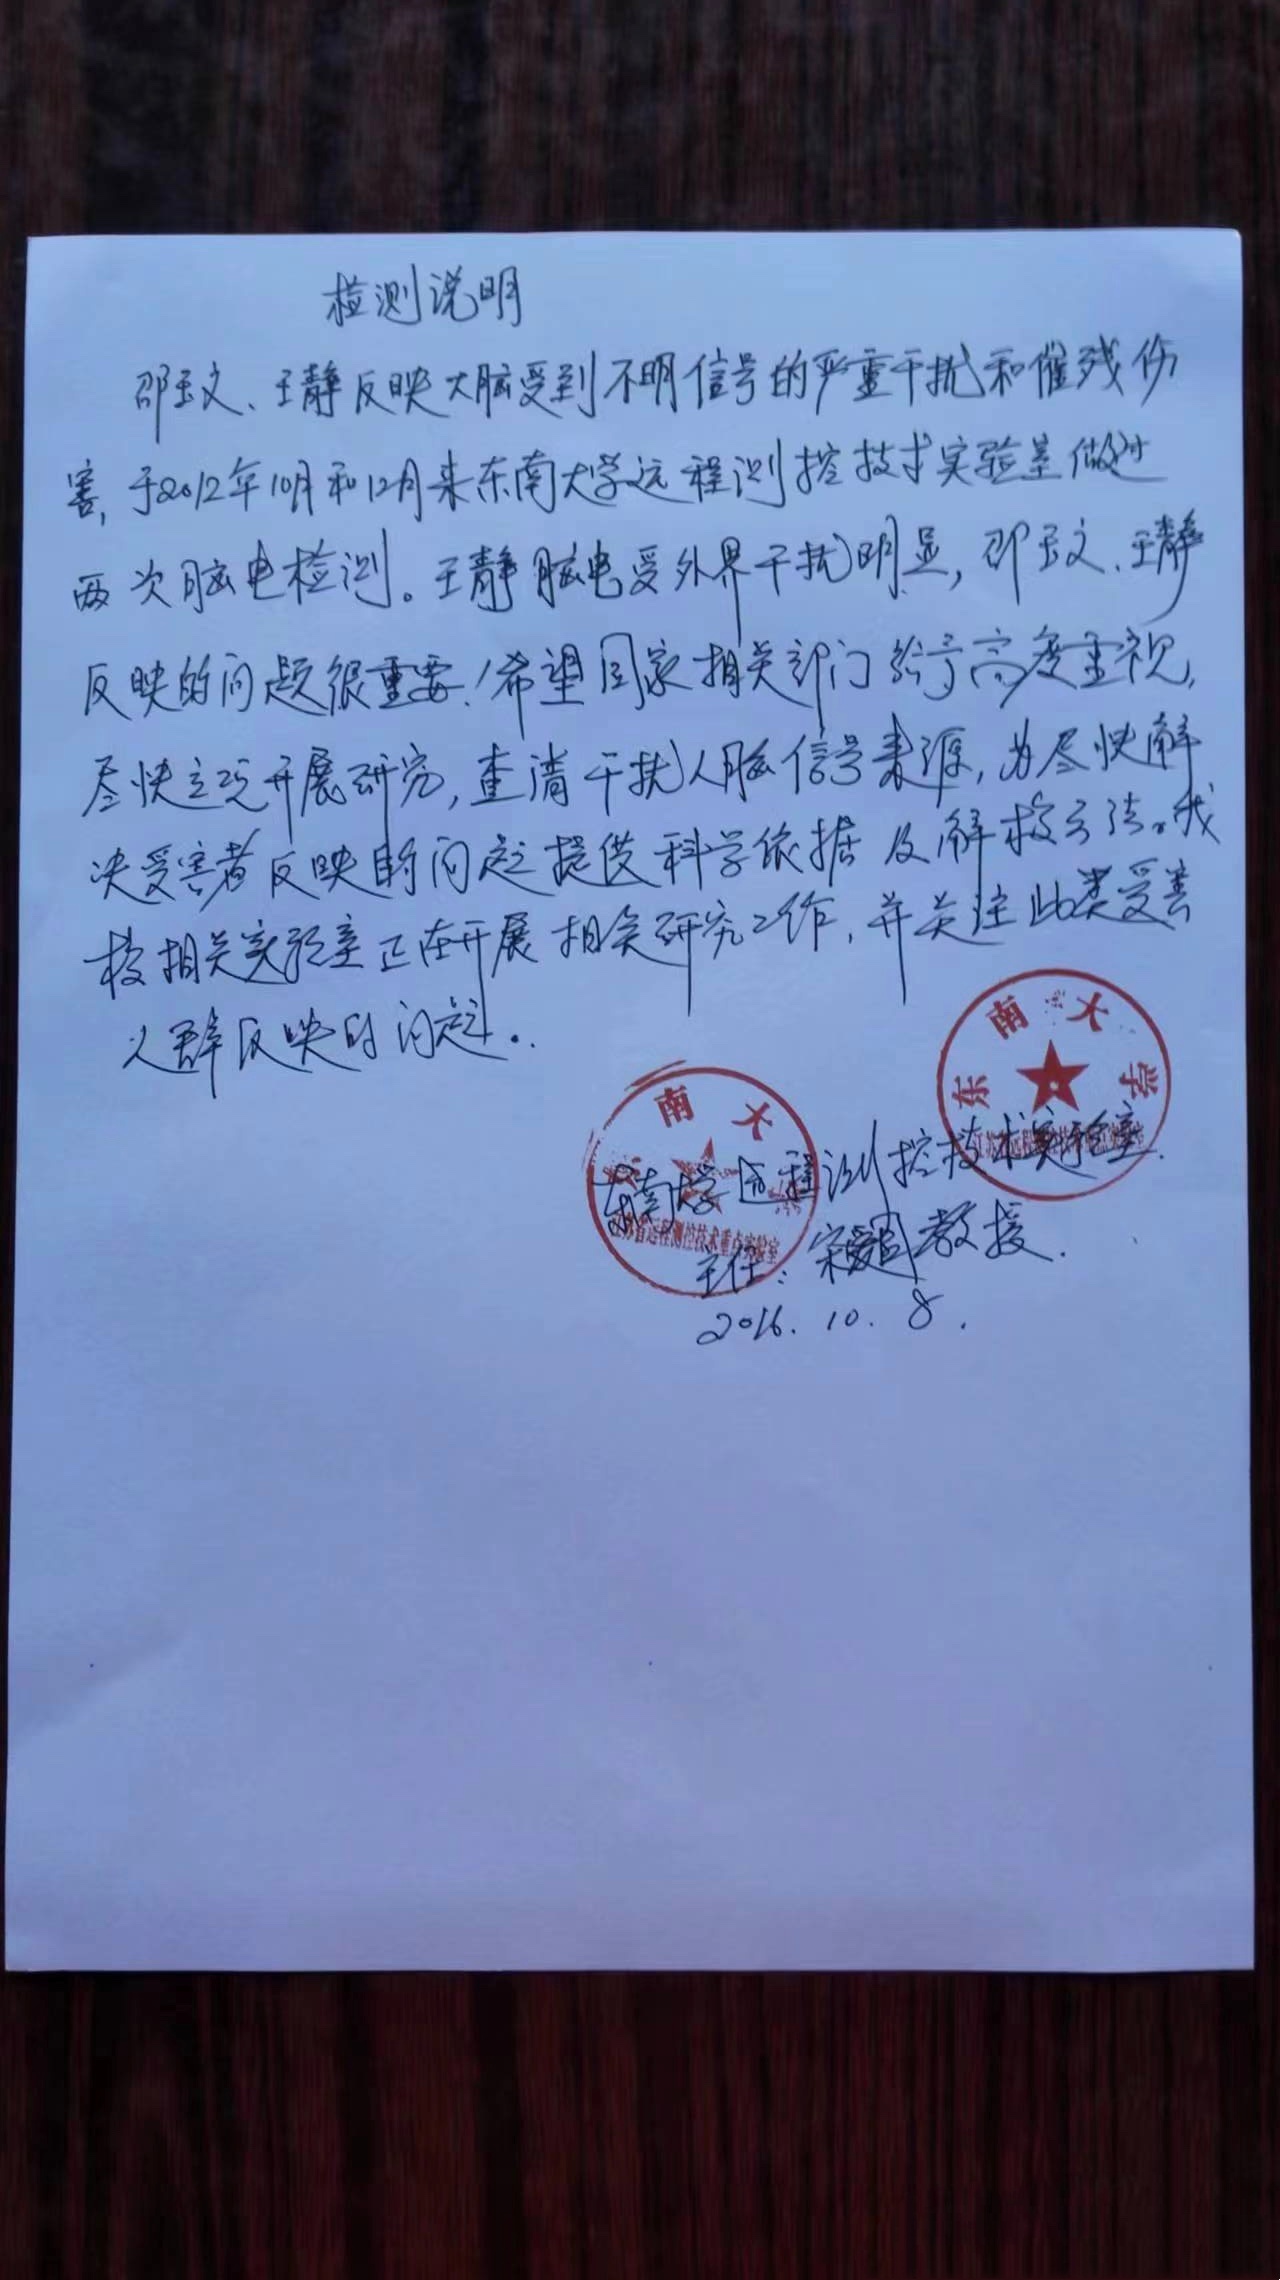 检测说明
邵玉文、王静反映大脑受到不明信号的严重干扰和催残伤
害,于2012年10月和12月来东南大学远程测控技术实验室做过
两次脑电检测。王静脑电受外界干扰明显,邵玉文、王静
反映的问题很重要!希望国家相关部门给予高度重视,
尽快立项开展研究,查清干扰人脑信号来源,为尽快解
决受害者反映的问题提供科学依据及解救方法。我
校相关实验室正在开展相关研究工作,并关注此类受害
人群反映的问题。
东南大学
南大
东南大学远程测控技术实验室.
江苏省远程测控技术重点实验室
主任: 宋爱国教授.
2016.10.8.